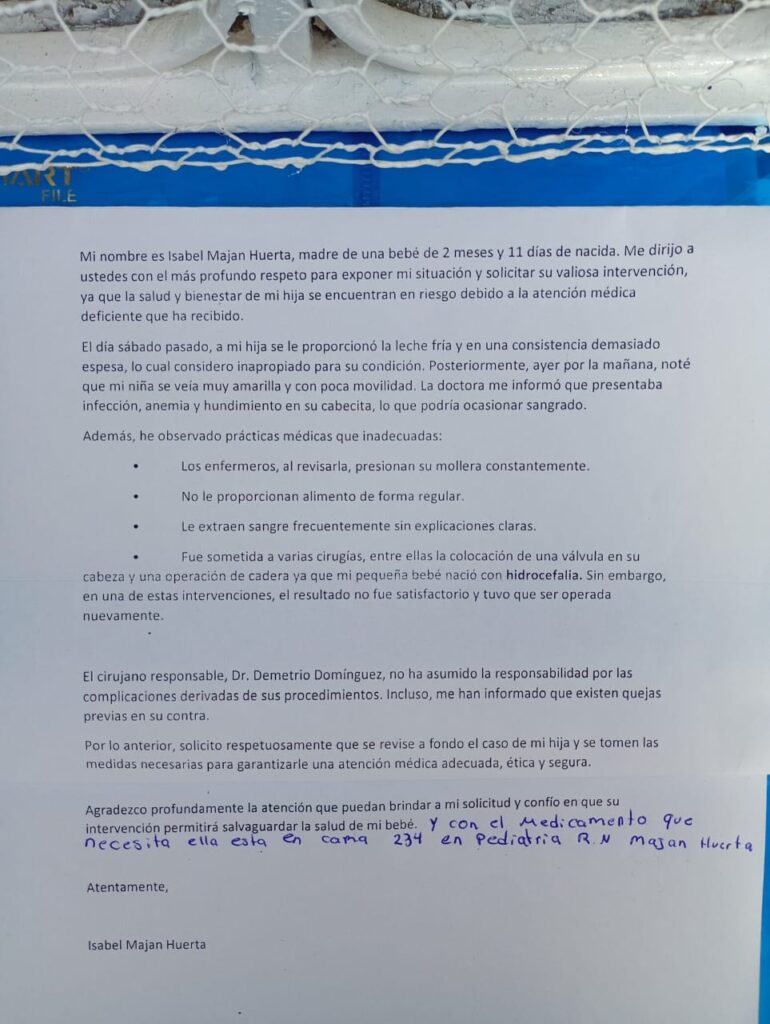 ART
FILE
Mi nombre es Isabel Majan Huerta, madre de una bebé de 2 meses y 11 días de nacida. Me dirijo a
ustedes con el más profundo respeto para exponer mi situación y solicitar su valiosa intervención,
ya que la salud y bienestar de mi hija se encuentran en riesgo debido a la atención médica
deficiente que ha recibido.
El día sábado pasado, a mi hija se le proporcionó la leche fría y en una consistencia demasiado
espesa, lo cual considero inapropiado para su condición. Posteriormente, ayer por la mañana, noté
que mi niña se veía muy amarilla y con poca movilidad. La doctora me informó que presentaba
infección, anemia y hundimiento en su cabecita, lo que podría ocasionar sangrado.
Además, he observado prácticas médicas que inadecuadas:
• Los enfermeros, al revisarla, presionan su mollera constantemente.
• No le proporcionan alimento de forma regular.
• Le extraen sangre frecuentemente sin explicaciones claras.
• Fue sometida a varias cirugías, entre ellas la colocación de una válvula en su
cabeza y una operación de cadera ya que mi pequeña bebé nació con hidrocefalia. Sin embargo,
en una de estas intervenciones, el resultado no fue satisfactorio y tuvo que ser operada
nuevamente.
El cirujano responsable, Dr. Demetrio Domínguez, no ha asumido la responsabilidad por las
complicaciones derivadas de sus procedimientos. Incluso, me han informado que existen quejas
previas en su contra.
Por lo anterior, solicito respetuosamente que se revise a fondo el caso de mi hija y se tomen las
medidas necesarias para garantizarle una atención médica adecuada, ética y segura.
Agradezco profundamente la atención que puedan brindar a mi solicitud y confío en que su
intervención permitirá salvaguardar la salud de mi bebé. Y con el Medicamento que
necesita ella esta en cama 234 en Pediatria R.N Majan Huerta
Atentamente,
Isabel Majan Huerta